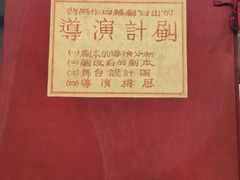 曹禺作四幕劇日出的
導演計劃
(一)劇本的導演分析
(二)改后的劇本
(三)舞台設計圖
(四)導演構思